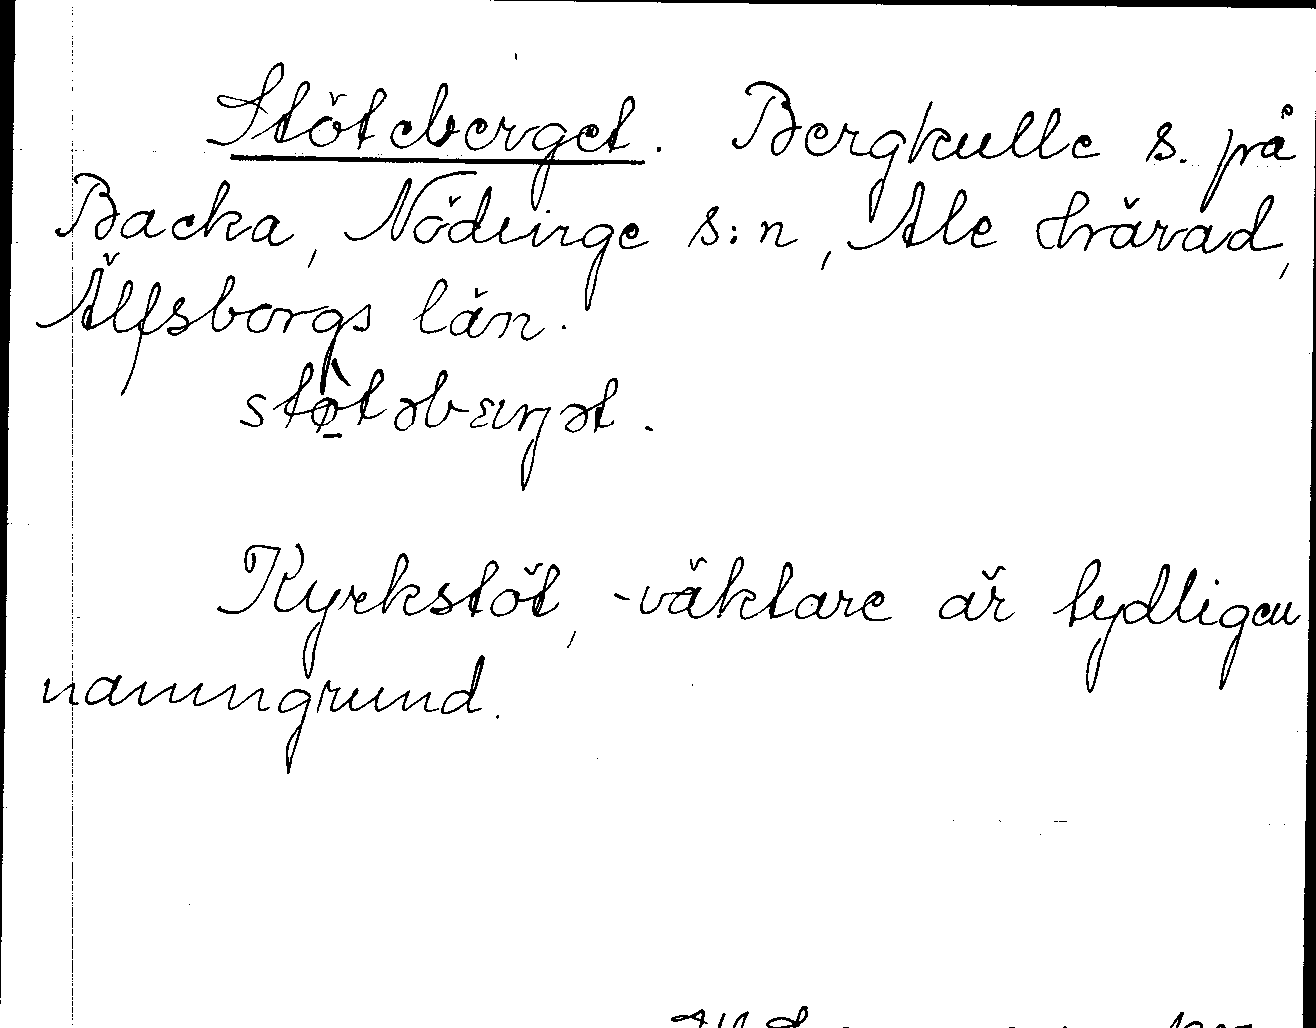 Stöteberget. Bergkulle s. på
Backa, Nödinge s:n, Ale härad,
Älfsborgs län.
stø̀təbærŋət.
Kyrkstöt, -väktare är tydligen
namngrund.